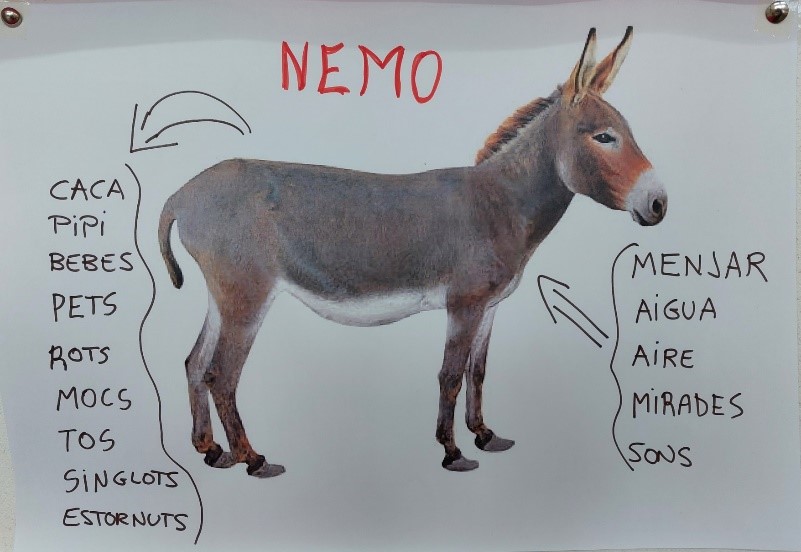 NEMO
CACA
PiPi
BEBES
PETS
ROTS
MOCS
TOS
SiNGLOTS
ESTORNUTS
MENJAR
AiGUA
AiRE
MiRADES
SONS